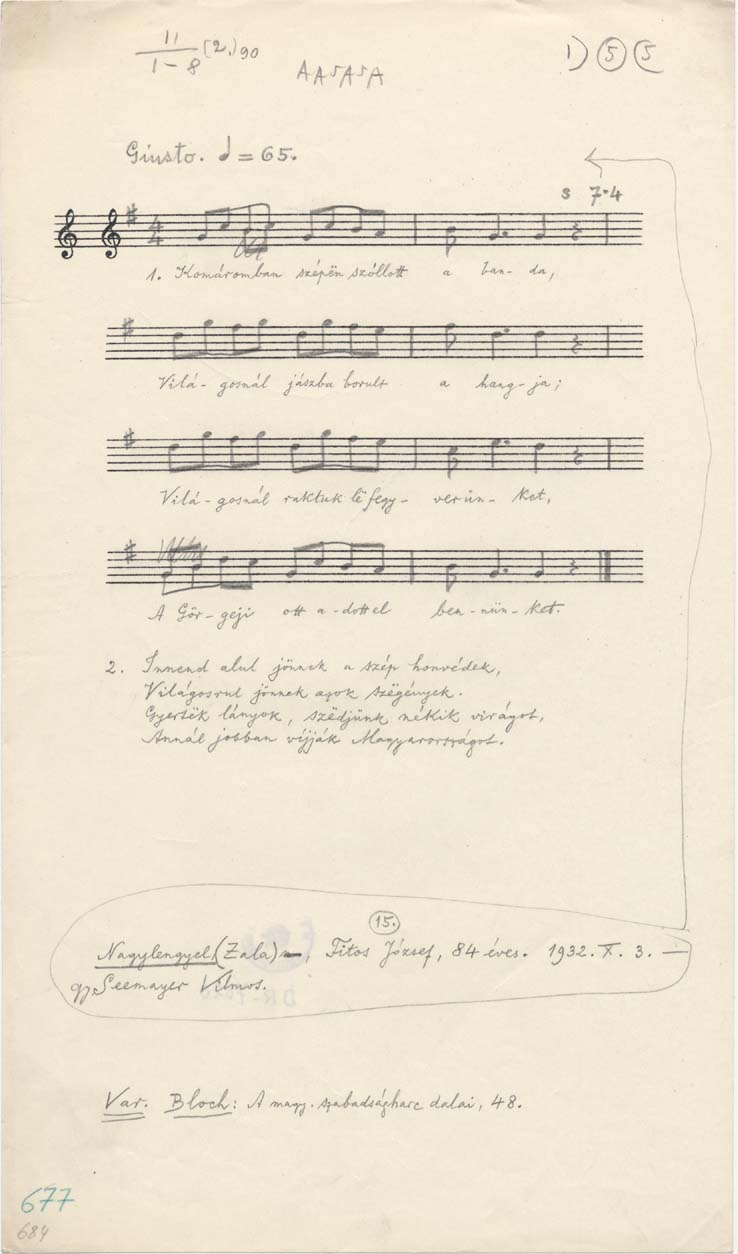 11
1-8 (2.) 90
A A5 A5 A
1) (5) (5
Giusto. ♩ = 65.
s 7·4
4
4
1. Komáromban szépën szóllott a ban- da,
Vilá- gosnál jászba borult a hang- ja;
Vilá- gosnál raktuk lë fegy- verün- ket,
A Gör- geji ott a- dott el ben- nün- ket.
2. Innend alul jönnek a szép honvédek,
Világosrul jönnek azok szëgények.
Gyertëk lányok, szëdjünk nékik virágot,
Annál jobban víjják Magyarországot.
15.
Nagylengyel (Zala) –, Fitos József, 84 éves. 1932. X. 3. —
gy. Seemayer Vilmos.
Var. Bloch: A magy. szabadságharc dalai, 48.
677
684